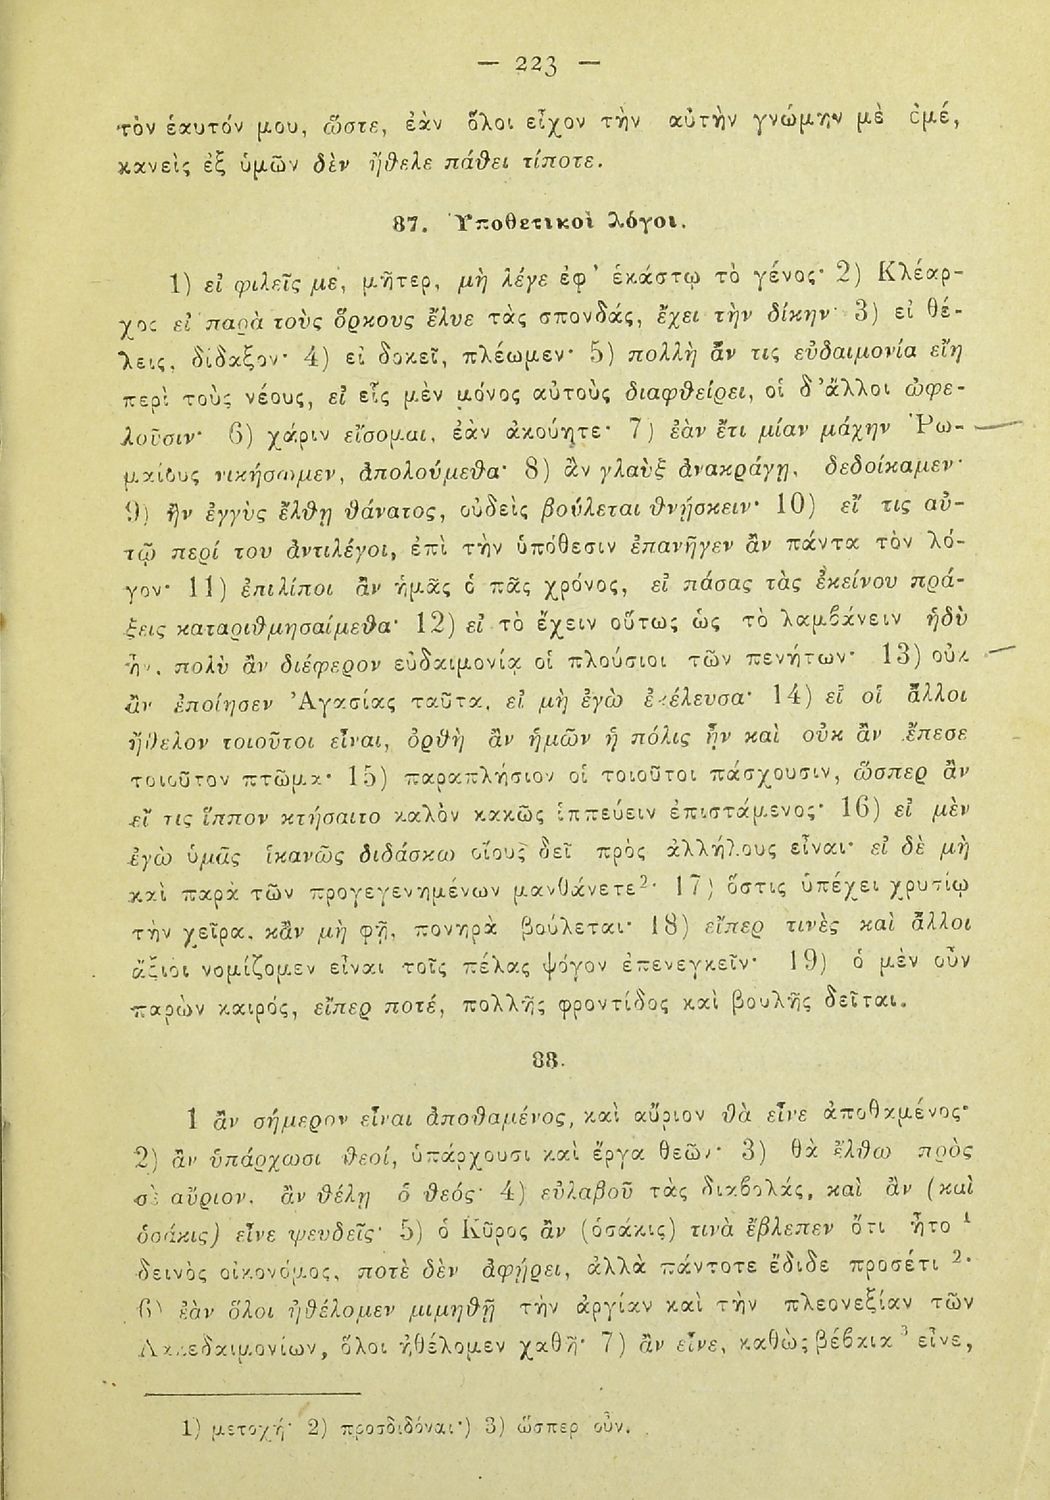 — 223 —
τὸν ἑαυτόν μου, ὥστε, ἐὰν ὅλοι εἶχον τὴν αὐτὴν γνώμην μὲ ἐμέ,
κανεὶς ἐξ ὑμῶν δὲν ἤθελε πάθει τίποτε.
87. Ὑποθετικοὶ λόγοι.
1) εἰ φιλεῖς με, μῆτερ, μὴ λέγε ἐφ’ ἑκάστῳ τὸ γένος· 2) Κλέαρ-
χος εἰ παρὰ τοὺς ὅρκους ἔλυε τὰς σπονδάς, ἔχει τὴν δίκην· 3) εἰ θέ-
λεις, δίδαξον· 4) εἰ δοκεῖ, πλέωμεν· 5) πολλὴ ἄν τις εὐδαιμονία εἴη
περὶ τοὺς νέους, εἰ εἷς μὲν μόνος αὐτοὺς διαφθείρει, οἱ δ’ἄλλοι ὠφε-
λοῦσιν· 6) χάριν εἴσομαι, ἐὰν ἀκούητε· 7) ἐὰν ἔτι μίαν μάχην Ῥω-
μαίους νικήσωμεν, ἀπολούμεθα· 8) ἂν γλαὺξ ἀνακράγῃ, δεδοίκαμεν·
9) ἢν ἐγγὺς ἔλθῃ θάνατος, οὐδεὶς βούλεται θνῄσκειν· 10) εἴ τις αὐ-
τῷ περί του ἀντιλέγοι, ἐπὶ τὴν ὑπόθεσιν ἐπανῆγεν ἂν πάντα τὸν λό-
γον· 11) ἐπιλίποι ἂν ἡμᾶς ὁ πᾶς χρόνος, εἰ πάσας τὰς ἐκείνου πρά-
ξεις καταριθμησαίμεθα· 12) εἰ τὸ ἔχειν οὕτως ὡς τὸ λαμβάνειν ἡδὺ
ἦν, πολὺ ἂν διέφερον εὐδαιμονίᾳ οἱ πλούσιοι τῶν πενήτων· 13) οὐκ
ἂν ἐποίησεν Ἀγασίας ταῦτα, εἰ μὴ ἐγὼ ἐκέλευσα· 14) εἰ οἱ ἄλλοι
ἤθελον τοιοῦτοι εἶναι, ὀρθὴ ἂν ἡμῶν ἡ πόλις ἦν καὶ οὐκ ἂν ἔπεσε
τοιοῦτον πτῶμα· 15) παραπλήσιον οἱ τοιοῦτοι πάσχουσιν, ὥσπερ ἂν
εἴ τις ἵππον κτήσαιτο καλὸν κακῶς ἱππεύειν ἐπιστάμενος· 16) εἰ μὲν
ἐγὼ ὑμᾶς ἱκανῶς διδάσκω οἵους δεῖ πρὸς ἀλλήλους εἶναι· εἰ δὲ μὴ
καὶ παρὰ τῶν προγεγενημένων μανθάνετε²· 17) ὅστις ὑπέχει χρυσίῳ
τὴν χεῖρα, κἂν μὴ φῇ, πονηρὰ βούλεται· 18) εἴπερ τινὲς καὶ ἄλλοι
ἄξιοι νομίζομεν εἶναι τοῖς πέλας ψόγον ἐπενεγκεῖν· 19) ὁ μὲν οὖν
παρὼν καιρός, εἴπερ ποτέ, πολλῆς φροντίδος καὶ βουλῆς δεῖται.
88.
1 ἂν σήμερον εἶναι ἀποθαμένος, καὶ αὔριον θὰ εἶνε ἀποθαμένος·
2) ἂν ὑπάρχωσι θεοί, ὑπάρχουσι καὶ ἔργα θεῶν· 3) θὰ ἔλθω πρὸς
σὲ αὔριον, ἂν θέλῃ ὁ θεός· 4) εὐλαβοῦ τὰς διαβολάς, καὶ ἂν (καὶ
ὁσάκις) εἶνε ψευδεῖς· 5) ὁ Κῦρος ἂν (ὁσάκις) τινὰ ἔβλεπεν ὅτι ἦτο ¹
δεινὸς οἰκονόμος, ποτὲ δὲν ἀφῄρει, ἀλλὰ πάντοτε ἔδιδε προσέτι ²·
6) ἐὰν ὅλοι ἠθέλομεν μιμηθῆ τὴν ἀργίαν καὶ τὴν πλεονεξίαν τῶν
Λακεδαιμονίων, ὅλοι ἠθέλομεν χαθῆ· 7) ἂν εἶνε, καθὼς βέβαια ³ εἶνε,
1) μετοχή· 2) προσδιδόναι·) 3) ὥσπερ οὖν.